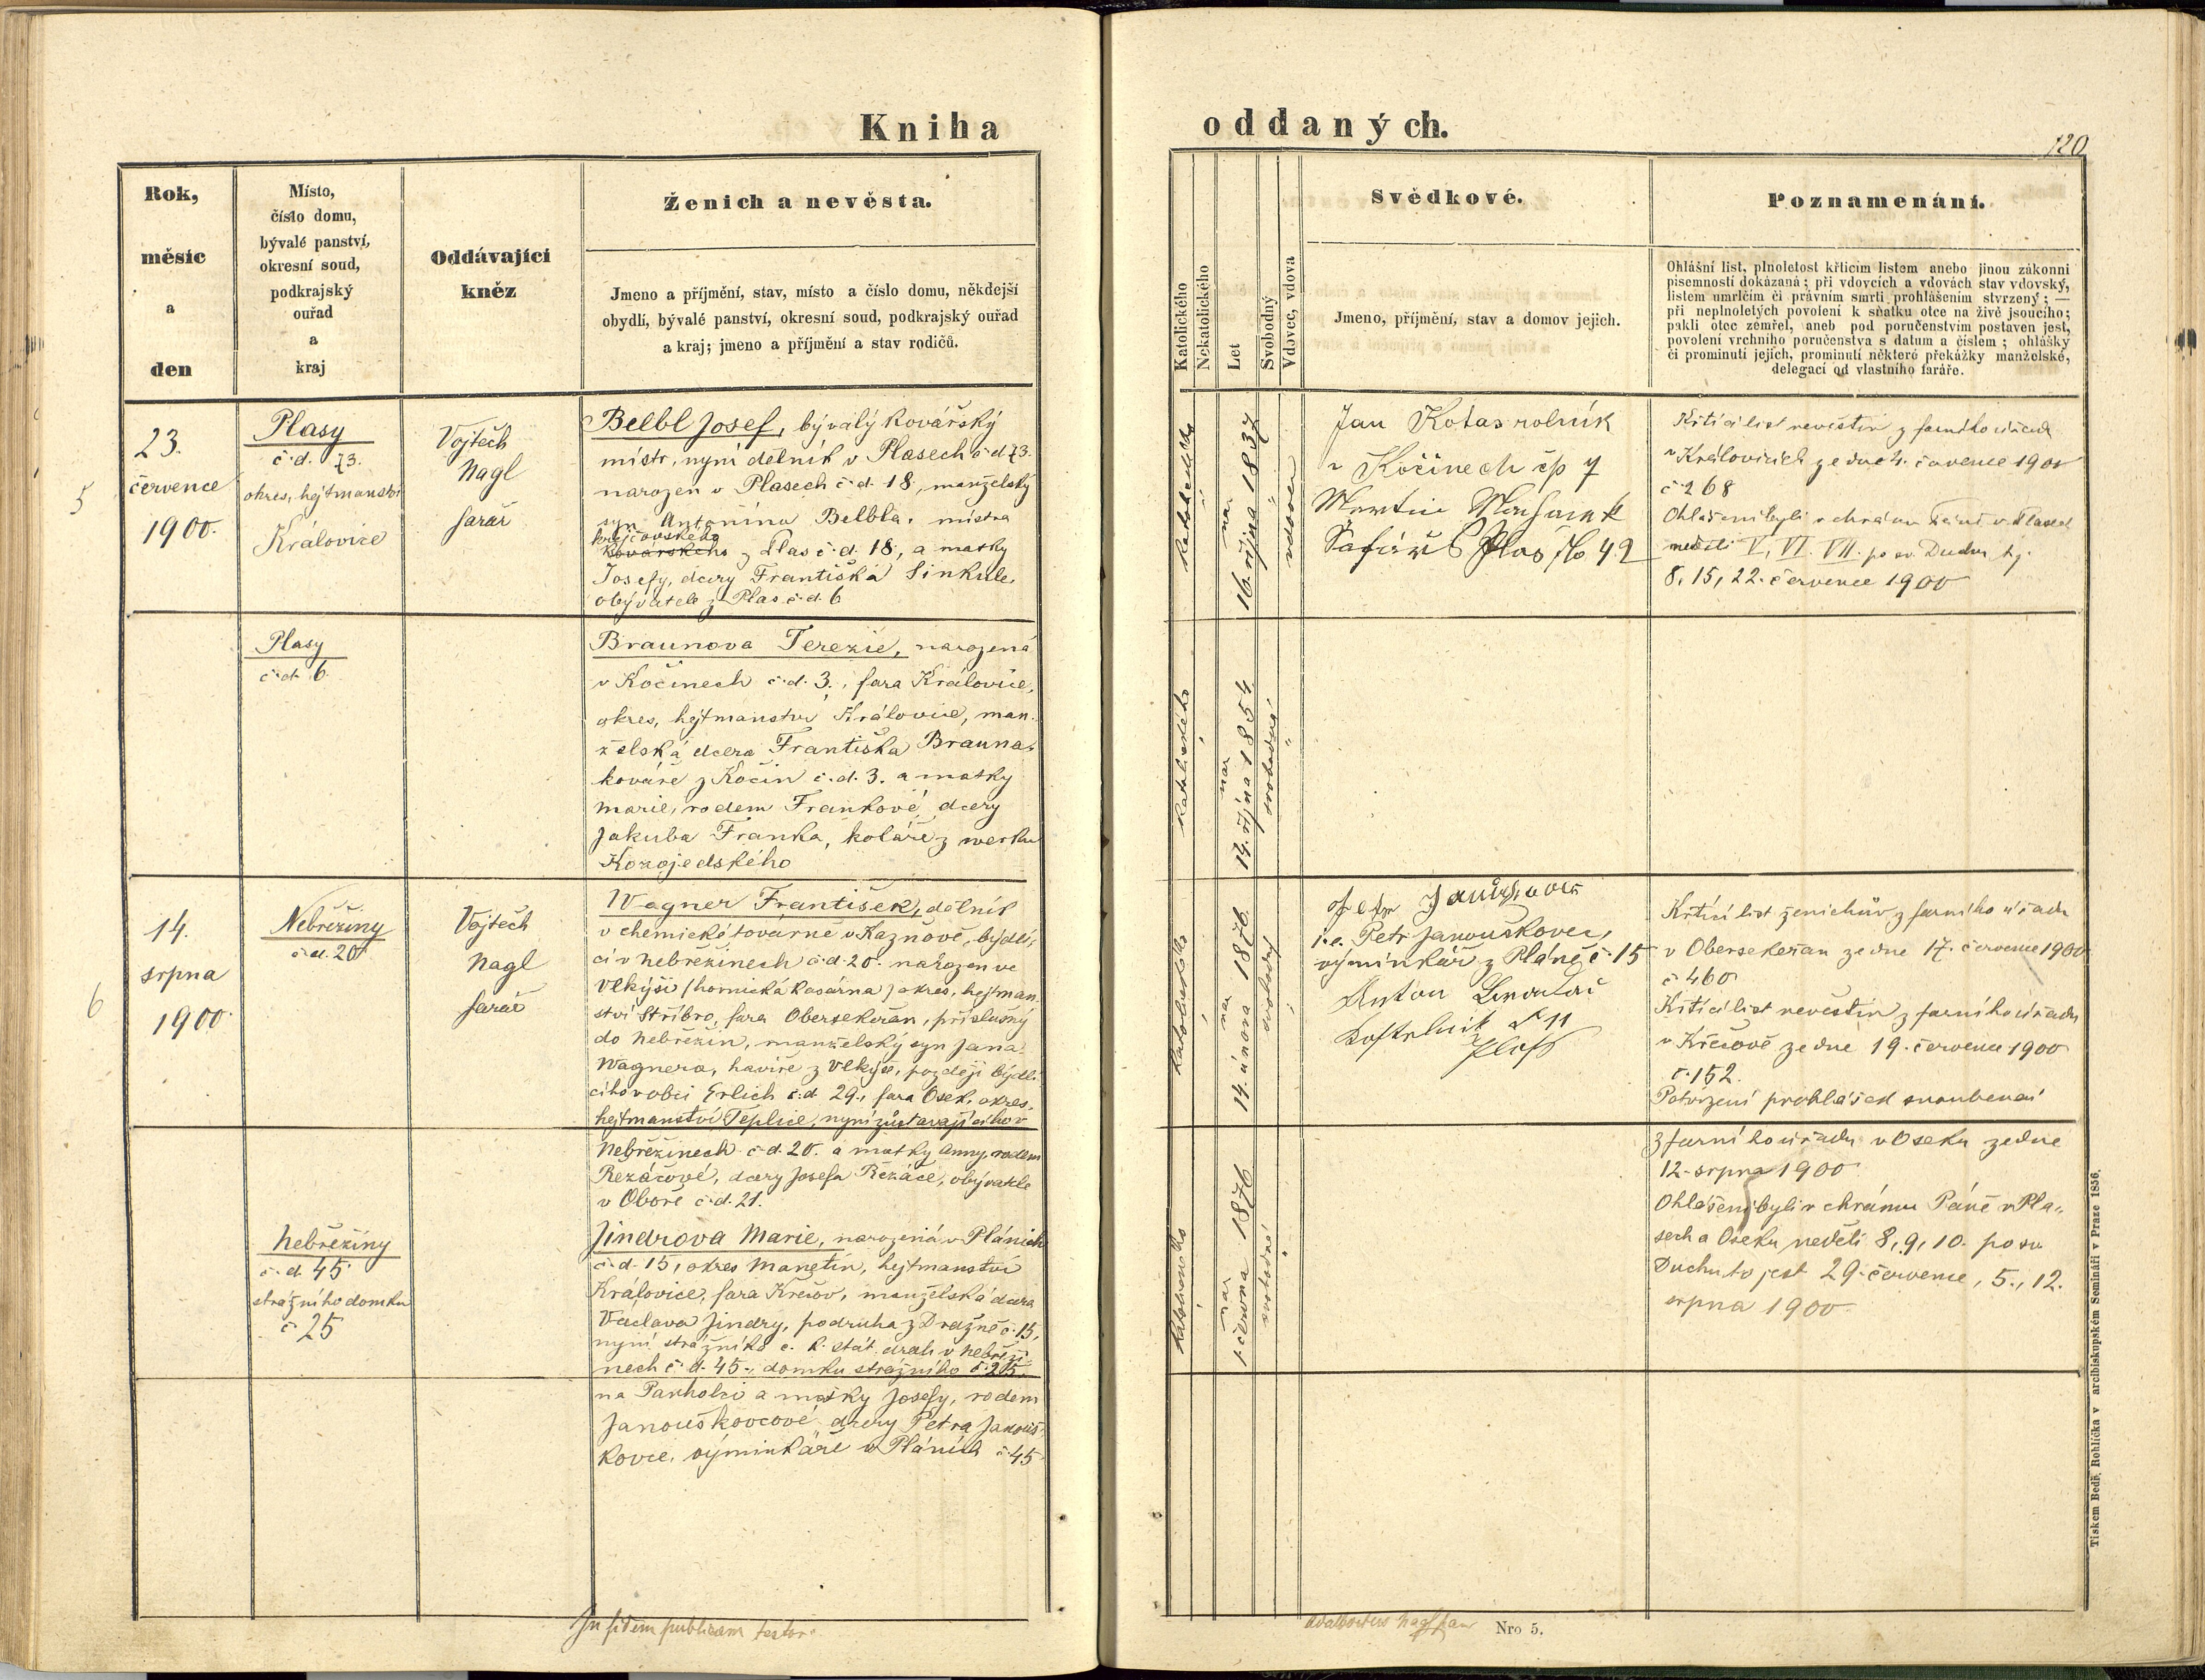 Kniha
oddaných.
120
Rok,
měsíc
a
den
Místo,
číslo domu,
bývalé panství,
okresní soud,
podkrajský
ouřad
a
kraj
Oddávající
kněz
Ženich a nevěsta.
Jmeno a příjmění, stav, místo a číslo domu, někdejší
obydlí, bývalé panství, okresní soud, podkrajský ouřad
a kraj; jmeno a příjmění a stav rodičů.
Katolického
Nekatolického
Let
Svobodný
Vdovec, vdova
Svědkové.
Jmeno, příjmění, stav a domov jejich.
Poznamenání.
Ohlášní list, plnoletost křticím listem anebo jinou zákonní
písemností dokázaná; při vdovcích a vdovách stav vdovský,
listem umrlčím či právním smrti prohlášením stvrzený; —
při neplnoletých povolení k sňatku otce na živě jsoucího;
pakli otec zemřel, aneb pod poručenstvím postaven jest,
povolení vrchního poručenstva s datum a číslem; ohlášky
či prominutí jejich, prominutí některé překážky manželské,
delegací od vlastního faráře.
5
23.
července
1900.
Plasy
č.d. 73.
okres, hejtmanství
Královice
Vojtěch
Nagl
farář
Belbl Josef, bývalý kovářský
mistr, nyní dělník v Plasech č.d. 73.
narozen v Plasech č.d. 18, manželský
syn Antonína Belbla, mistra
krejčovského
kovářského z Plas č.d. 18, a matky
Josefy, dcery Františka Sinkule,
obyvatele z Plas č.d. 6
katolického
nar
16. října 1837
vdovec
Jan Kotas rolník
v Kočinech čp 7
Martin
Šafář Plas No 49
Křticí list nevěstin z farního úřadu
v Královicích ze dne 4. července 1900
č 268
Ohlášeni byli v chrámu Páně v Plasech
neděli V, VI. VII. po sv. Duchu tj.
8, 15, 22. července 1900
Plasy
č.d. 6
Braunova Terezie, narozená
v Kočinech č.d. 3., fara Královice,
okres, hejtmanství Královice, man-
želská dcera Františka Brauna,
kováře z Kočin č.d. 3. a matky
Marie, rodem Frankové dcery
Jakuba Franka, koláře z werku
Kozojedského
katolického
nar
14. října 1854
svobodná
6
14.
srpna
1900
Nebřeziny
č.d. 20
Vojtěch
Nagl
farář
Wagner František, dělník
v chemické továrně v Kaznově, bydlí-
cí v Nebřežinech č.d. 20. narozen ve
Vlkýši (hornická kasárna) okres, hejtman-
ství Stříbro, fara Obersekeřan, příslušný
do Nebřežin, manželský syn Jana
Wagnera, havíře z Vlkýše, později bydlí-
cího v obci Erlich č.d 29., fara Osek, okres,
hejtmanství Teplice, nyní zůstavajícího v
Nebřežinech č.d. 20. a matky Anny, rodem
Rezáčové, dcery Josefa Řezáče, obyvatele
v Oboře č.d. 21.
katolického
nar
14. února 1876
svobodný
i.e. Petr Janouškovec,
výminkář z Pláně č. 15
Anton
Kostelník č 11
Křticí list ženichův z farního úřadu
v Obersekeřan ze dne 17. července 1900
č 460
Křticí list nevěstin z farního úřadu
v Křečově ze dne 19. července 1900
č. 152.
Potvrzení prohlášek snoubenců
z farního úřadu v Oseku ze dne
12. srpna 1900
Ohlášeni byli v chrámu Páně v Pla-
sech a Oseku neděli 8, 9, 10. po sv
Duchu to jest 29. července, 5., 12.
srpna 1900
Nebřežiny
č.d. 45
strážního domku
č 25
Jindrova Marie, narozená v Pláních
č.d. 15, okres Manětín, hejtmanství
Královice, fara Křečov, manželská dcera
Václava Jindry, podruha z Dražně č. 15,
nyní strážníka c. k. stát. drah v Nebřeži-
nech č.d. 45., domku strážního č. 25.
na Panholci a matky Josefy, rodem
Janouškovcové dcery Petra Janouš-
kovce, výminkáře v Pláních č. 45
katolického
nar
1. června 1876
svobodná
In fidem publicam testor
Adalbertus Nagl
Nro 5.
Tiskem Bedř. Rohlíčka v arcibiskupském Semináři v Praze 1856.